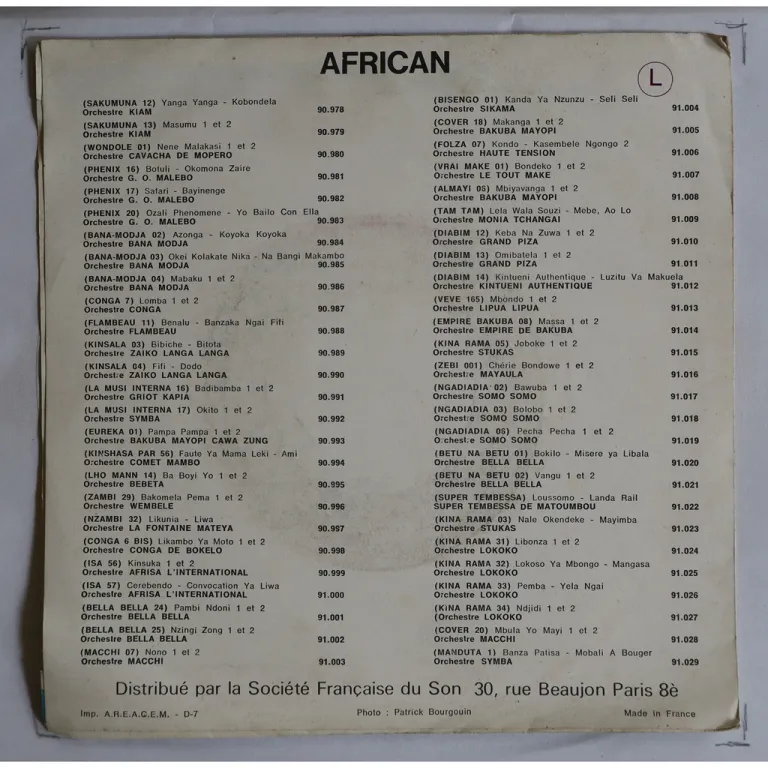 AFRICAN
L
(SAKUMUNA 12) Yanga Yanga - Kobondela
Orchestre KIAM 90.978
(SAKUMUNA 13) Masumu 1 et 2
Orchestre KIAM 90.979
(WONDOLE 01) Nene Malakasi 1 et 2
Orchestre CAVACHA DE MOPERO 90.980
(PHENIX 16) Botuli - Okomona Zaire
Orchestre G. O. MALEBO 90.981
(PHENIX 17) Safari - Bayinenge
Orchestre G. O. MALEBO 90.982
(PHENIX 20) Ozali Phenomene - Yo Bailo Con Ella
Orchestre G. O. MALEBO 90.983
(BANA-MODJA 02) Azonga - Koyoka Koyoka
Orchestre BANA MODJA 90.984
(BANA-MODJA 03) Okei Kolakate Nika - Na Bangi Makambo
Orchestre BANA MODJA 90.985
(BANA-MODJA 04) Mabaku 1 et 2
Orchestre BANA MODJA 90.986
(CONGA 7) Lomba 1 et 2
Orchestre CONGA 90.987
(FLAMBEAU 11) Benalu - Banzaka Ngai Fifi
Orchestre FLAMBEAU 90.988
(KINSALA 03) Bibiche - Bitota
Orchestre ZAIKO LANGA LANGA 90.989
(KINSALA 04) Fifi - Dodo
Orchestre ZAIKO LANGA LANGA 90.990
(LA MUSI INTERNA 16) Badibamba 1 et 2
Orchestre GRIOT KAPIA 90.991
(LA MUSI INTERNA 17) Okito 1 et 2
Orchestre SYMBA 90.992
(EUREKA 01) Pampa Pampa 1 et 2
Orchestre BAKUBA MAYOPI CAWA ZUNG 90.993
(KINSHASA PAR 56) Faute Ya Mama Leki - Ami
Orchestre COMET MAMBO 90.994
(LHO MANN 14) Ba Boyi Yo 1 et 2
Orchestre BEBETA 90.995
(ZAMBI 29) Bakomela Pema 1 et 2
Orchestre WEMBELE 90.996
(NZAMBI 32) Likunia - Liwa
Orchestre LA FONTAINE MATEYA 90.997
(CONGA 6 BIS) Likambo Ya Moto 1 et 2
Orchestre CONGA DE BOKELO 90.998
(ISA 56) Kinsuka 1 et 2
Orchestre AFRISA L'INTERNATIONAL 90.999
(ISA 57) Cerebendo - Convocation Ya Liwa
Orchestre AFRISA L'INTERNATIONAL 91.000
(BELLA BELLA 24) Pambi Ndoni 1 et 2
Orchestre BELLA BELLA 91.001
(BELLA BELLA 25) Nzingi Zong 1 et 2
Orchestre BELLA BELLA 91.002
(MACCHI 07) Nono 1 et 2
Orchestre MACCHI 91.003
(BISENGO 01) Kanda Ya Nzunzu - Seli Seli
Orchestre SIKAMA 91.004
(COVER 18) Makanga 1 et 2
Orchestre BAKUBA MAYOPI 91.005
(FOLZA 07) Kondo - Kasembele Ngongo 2
Orchestre HAUTE TENSION 91.006
(VRAI MAKE 01) Bondeko 1 et 2
Orchestre LE TOUT MAKE 91.007
(ALMAYI 05) Mbiyavanga 1 et 2
Orchestre BAKUBA MAYOPI 91.008
(TAM TAM) Lela Wala Souzi - Mebe, Ao Lo
Orchestre MONIA TCHANGAI 91.009
(DIABIM 12) Keba Na Zuwa 1 et 2
Orchestre GRAND PIZA 91.010
(DIABIM 13) Omibatela 1 et 2
Orchestre GRAND PIZA 91.011
(DIABIM 14) Kintueni Authentique - Luzitu Va Makuela
Orchestre KINTUENI AUTHENTIQUE 91.012
(VEVE 165) Mbondo 1 et 2
Orchestre LIPUA LIPUA 91.013
(EMPIRE BAKUBA 08) Massa 1 et 2
Orchestre EMPIRE DE BAKUBA 91.014
(KINA RAMA 05) Joboke 1 et 2
Orchestre STUKAS 91.015
(ZEBI 001) Chérie Bondowe 1 et 2
Orchestre MAYAULA 91.016
(NGADIADIA 02) Bawuba 1 et 2
Orchestre SOMO SOMO 91.017
(NGADIADIA 03) Bolobo 1 et 2
Orchestre SOMO SOMO 91.018
(NGADIADIA 06) Pecha Pecha 1 et 2
Orchestre SOMO SOMO 91.019
(BETU NA BETU 01) Bokilo - Misere ya Libala
Orchestre BELLA BELLA 91.020
(BETU NA BETU 02) Vangu 1 et 2
Orchestre BELLA BELLA 91.021
(SUPER TEMBESSA) Loussomo - Landa Rail
SUPER TEMBESSA DE MATOUMBOU 91.022
(KINA RAMA 03) Nale Okendeke - Mayimba
Orchestre STUKAS 91.023
(KINA RAMA 31) Libonza 1 et 2
Orchestre LOKOKO 91.024
(KINA RAMA 32) Lokoso Ya Mbongo - Mangasa
Orchestre LOKOKO 91.025
(KINA RAMA 33) Pemba - Yela Ngai
Orchestre LOKOKO 91.026
(KINA RAMA 34) Ndjidi 1 et 2
(Orchestre LOKOKO 91.027
(COVER 20) Mbula Yo Mayi 1 et 2
Orchestre MACCHI 91.028
(MANDUTA 1) Banza Patisa - Mobali A Bouger
Orchestre SYMBA 91.029
Distribué par la Société Française du Son 30, rue Beaujon Paris 8è
Imp. A.R.E.A.C.E.M. - D-7 Photo : Patrick Bourgouin Made in France